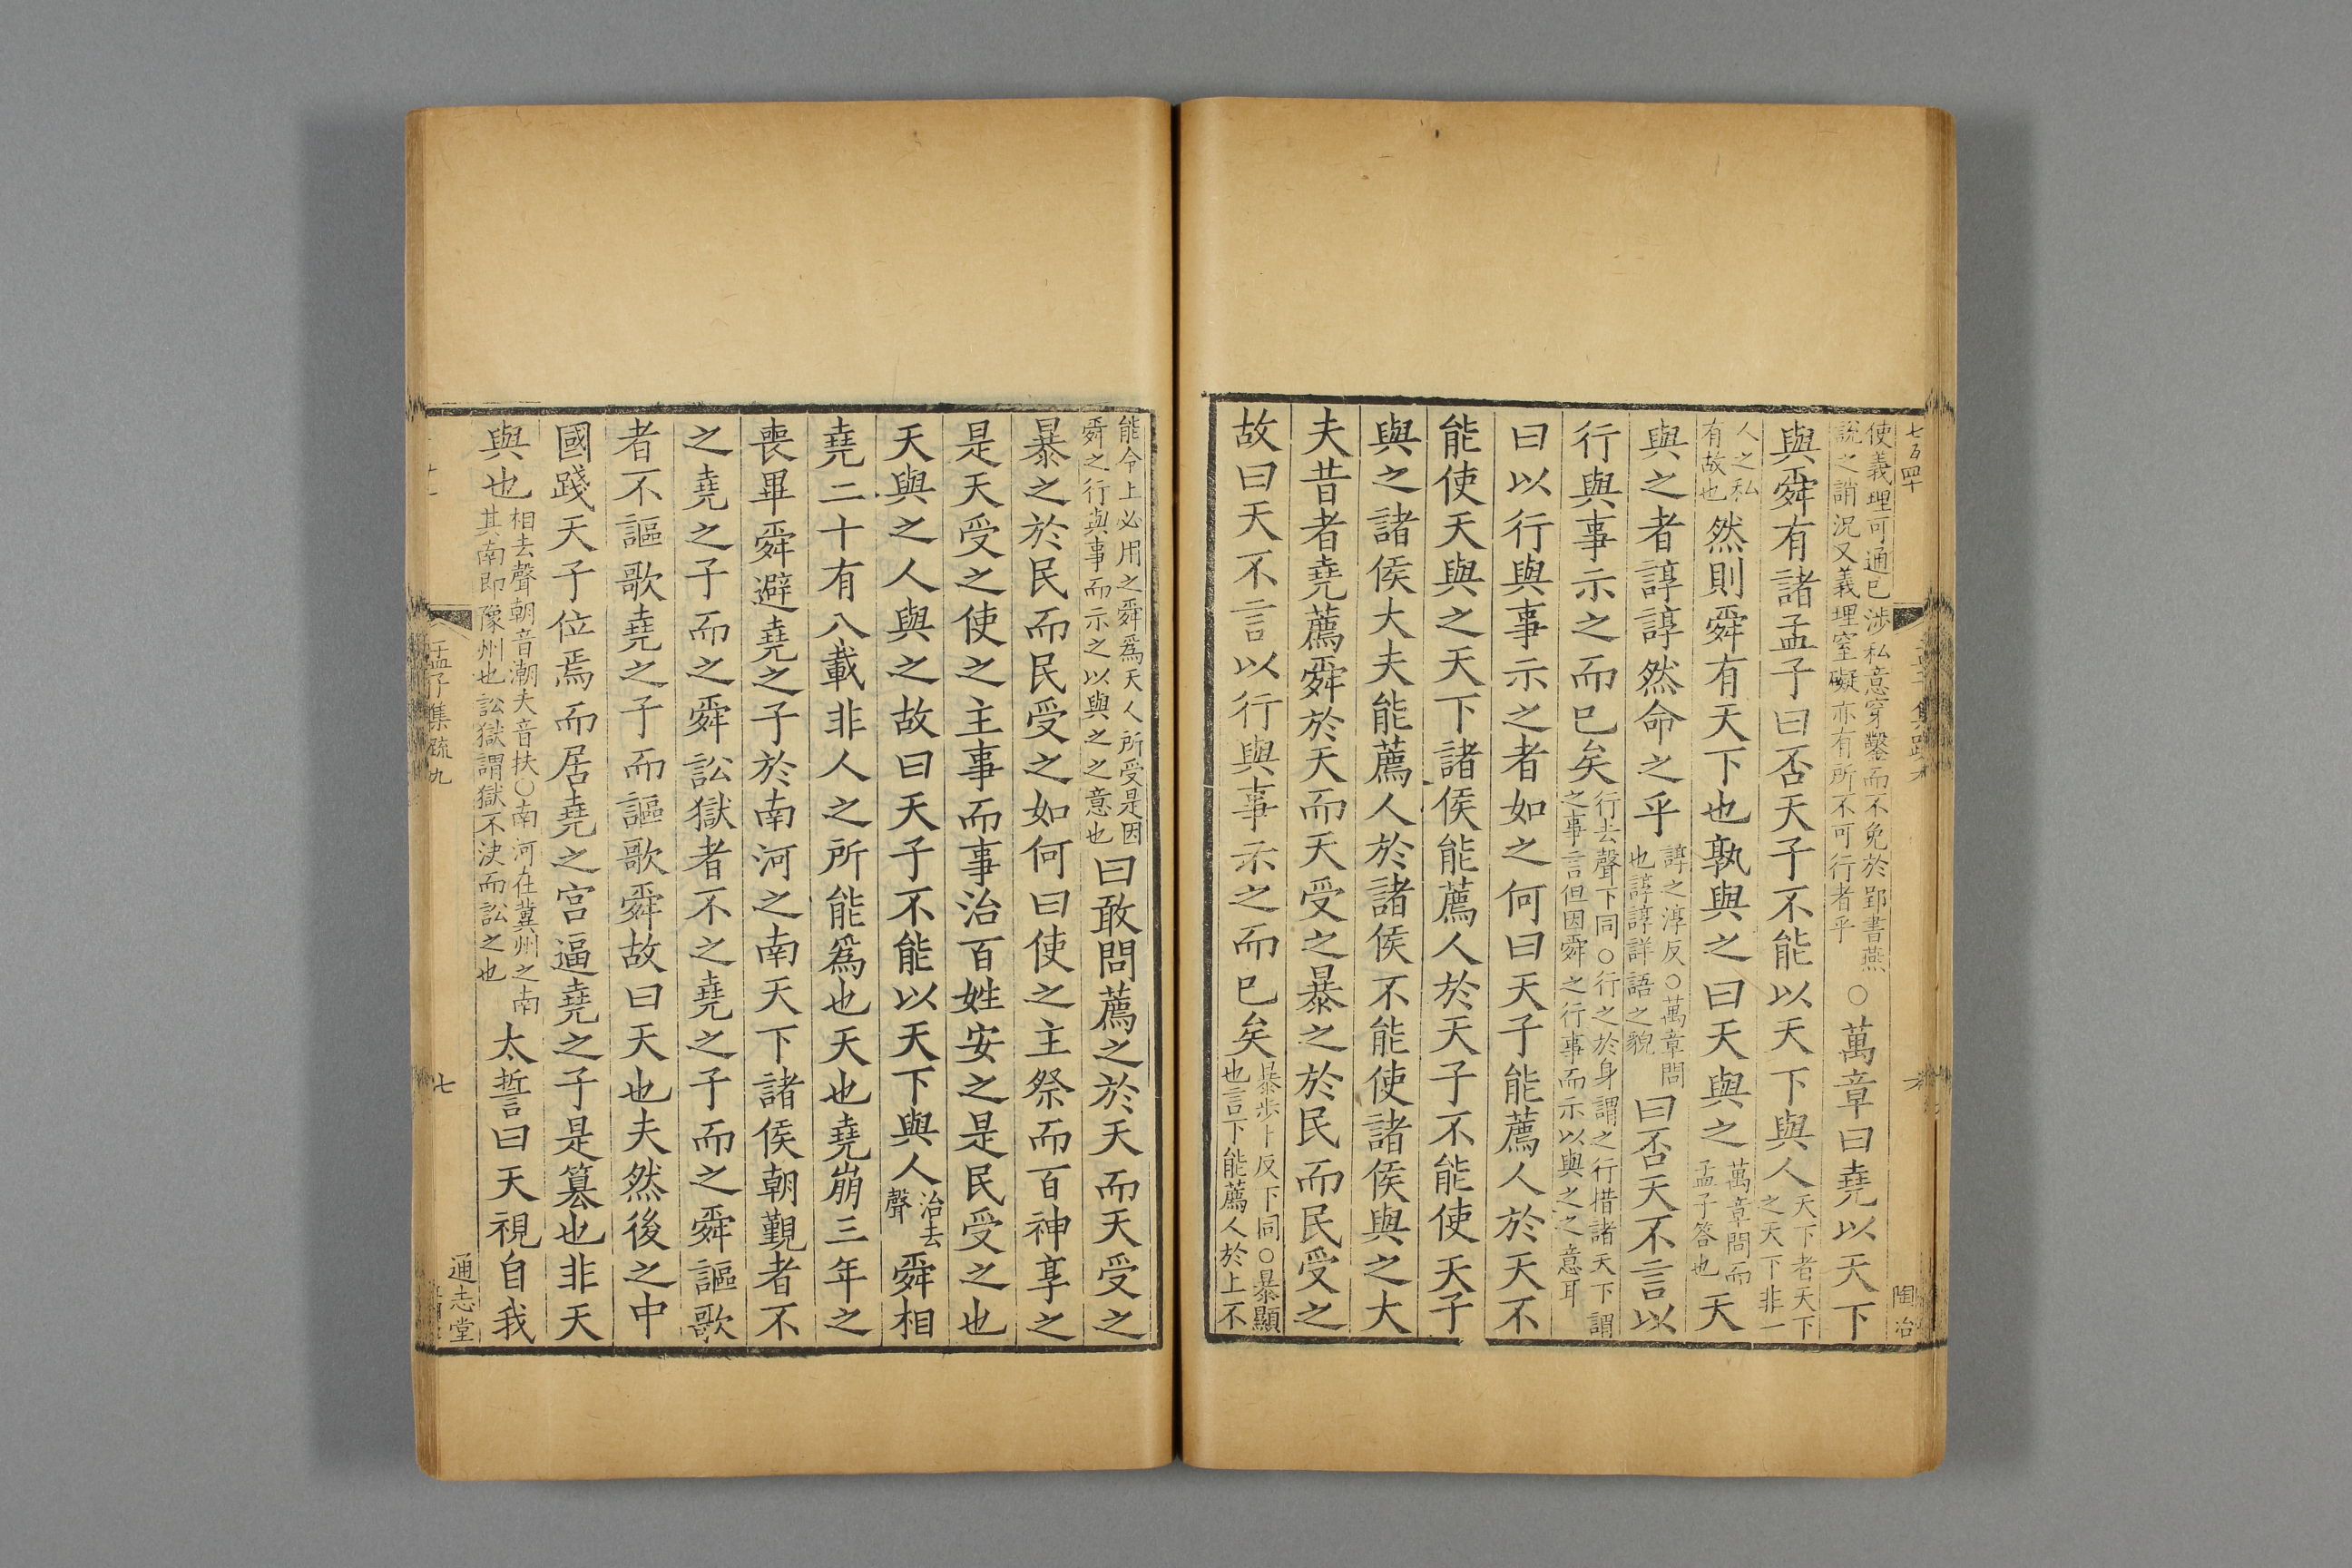 七百四十
孟子集疏九
陶冶
使義理可通已涉私意穿鑿而不免於郢書燕
說之誚況又義理窒礙亦有所不可行者乎
○萬章曰堯以天下
與舜有諸孟子曰否天子不能以天下與人
天下者天下
之天下非一
人之私
有故也
然則舜有天下也孰與之曰天與之
萬章問而
孟子答也
天
與之者諄諄然命之乎
諄之淳反○萬章問
也諄諄詳語之貌
曰否天不言以
行與事示之而已矣
行去聲下同○行之於身謂之行措諸天下謂
之事言但因舜之行事而示以與之之意耳
曰以行與事示之者如之何曰天子能薦人於天不
能使天與之天下諸侯能薦人於天子不能使天子
與之諸侯大夫能薦人於諸侯不能使諸侯與之大
夫昔者堯薦舜於天而天受之暴之於民而民受之
故曰天不言以行與事示之而已矣
暴步卜反下同○暴顯
也言下能薦人於上不
能令上必用之舜為天人所受是因
舜之行與事而示之以與之之意也
曰敢問薦之於天而天受之
暴之於民而民受之如何曰使之主祭而百神享之
是天受之使之主事而事治百姓安之是民受之也
天與之人與之故曰天子不能以天下與人
治去
聲
舜相
堯二十有八載非人之所能為也天也堯崩三年之
喪畢舜避堯之子於南河之南天下諸侯朝覲者不
之堯之子而之舜訟獄者不之堯之子而之舜謳歌
者不謳歌堯之子而謳歌舜故曰天也夫然後之中
國踐天子位焉而居堯之宮逼堯之子是篡也非天
與也
相去聲朝音潮夫音扶○南河在冀州之南
其南即豫州也訟獄謂獄不決而訟之也
太誓曰天視自我
孟子集疏九
七
通志堂